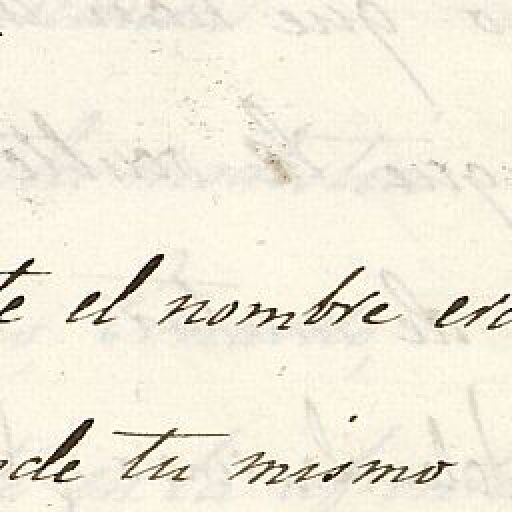 te el nombre era
nde tu mismo